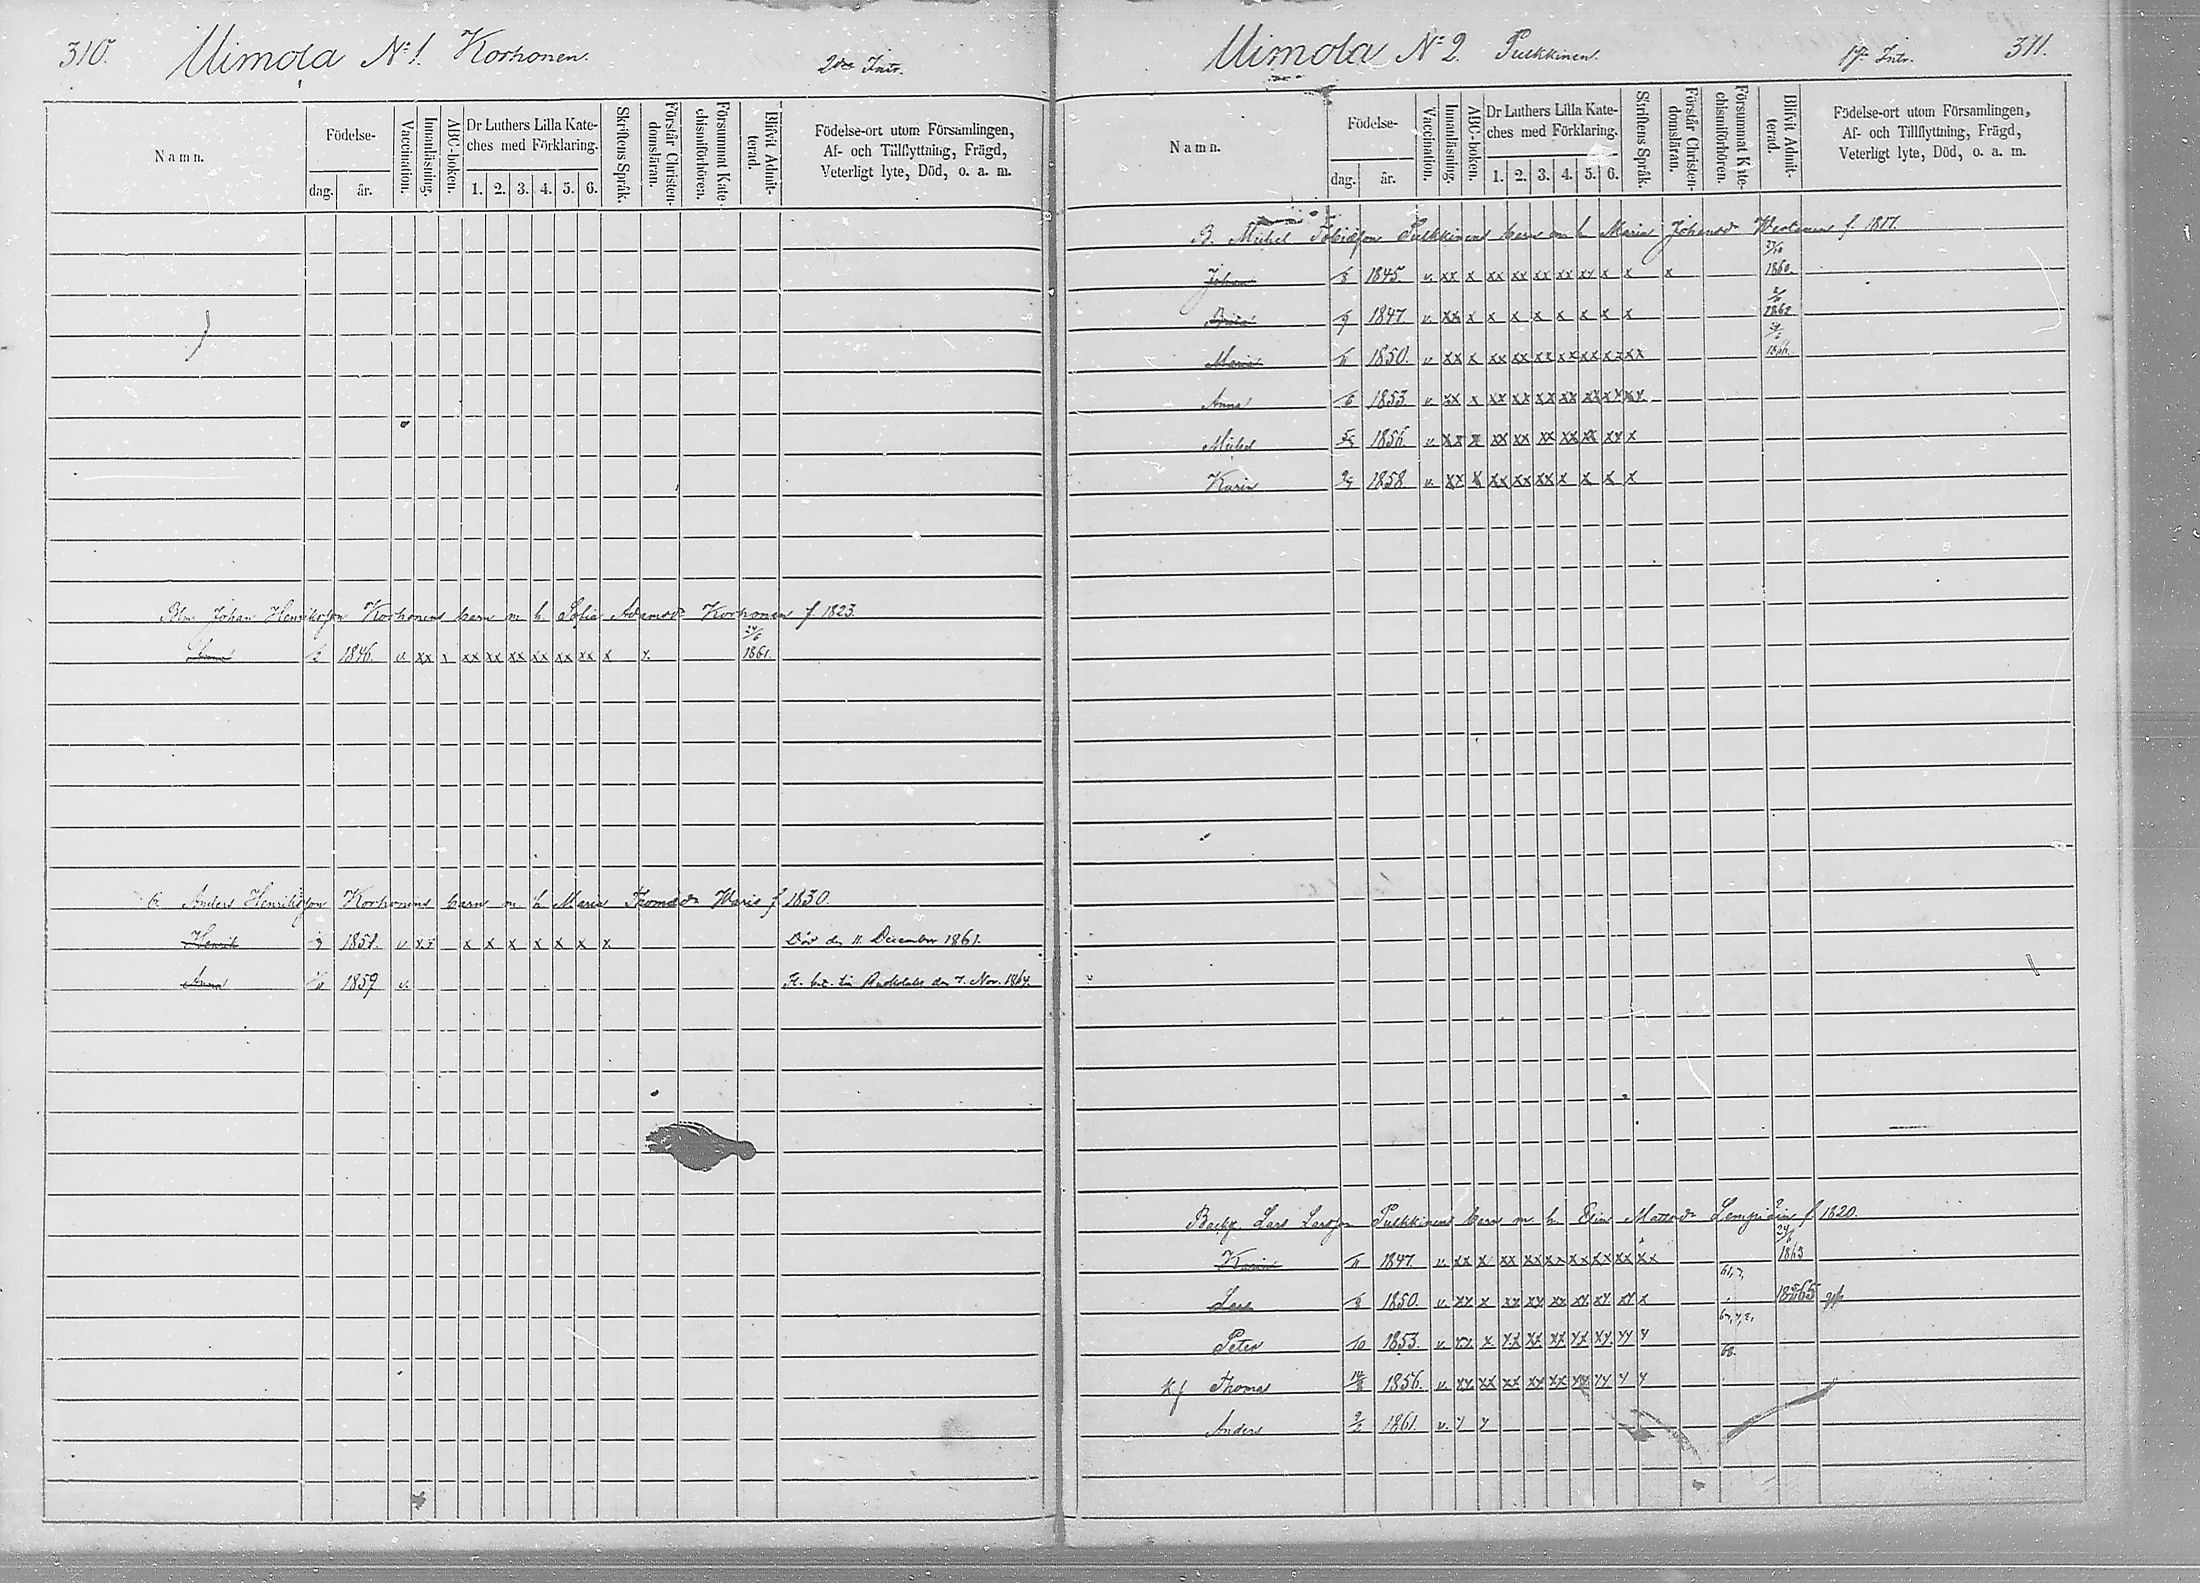 310. Uimola No 1. Korhonen. 2dra Intr.
Namn.
Födelse-
dag. år.
Vaccination.
Innanläsning.
ABC-boken.
Dr Luthers Lilla Kate-
ches med Förklaring.
1. 2. 3. 4. 5. 6.
Skriftens Språk.
Förstår Christen-
domsläran.
Försummat Kate-
chismiförhören.
Blifvit Admit-
terad.
Födelse-ort utom Församlingen,
Af- och Tillflyttning, Frägd,
Veterligt lyte, Död, o. a. m.
Johan Henriksson Korhonens barn m. h. Sofia Adamsdr Korhonen f. 1823.
24/6
1846. v. xx x xx xx xx xx xx xx x x 1861.
Anders Henriksson Korhonens barn m h Maria Thomasdr Waris f 1830.
Henrik 1851. v xx x x x x x x x Död den 11. December 1861.
Anna 1859 v. den 7. Nov. 1864.
Uimola No 2. Pulkkinen. 1sta Intr. 311.
Namn.
Födelse-
dag. år.
Vaccination.
Innanläsning.
ABC-boken.
Dr Luthers Lilla Kate-
ches med Förklaring.
1. 2. 3. 4. 5. 6.
Skriftens Språk.
Förstår Christen-
domsläran.
Försummat Kate-
chismiförhören.
Blifvit Admit-
terad.
Födelse-ort utom Församlingen,
Af- och Tillflyttning, Frägd,
Veterligt lyte, Död, o. a. m.
B. Michel Tobiasson Pulkkinens barn m h Maria Johansdr Westerinen f. 1817.
Johan 6 1845. v. xx x xx xx xx xx xx x x x 1860.
1847 v. xx x x x x x x x x 1862
Maria 1850. v xx x xx xx xx xx xx xx xx 1866.
Anna 1853 v xx x xx xx xx xx xx xx xx
Michel 1856 v. xx x xx xx xx xx xx xx x
Karin 1858 v. xx x xx xx xx x x x x
Lars Larsson Pulkkinens barn m. h. Elin Mattsdr Lempiäin f 1820.
24/6
Karin 1847. v. xx x xx xx xx xx xx xx xx 1863
Lars 1850. v. xx x xx xx xx xx xx xx x 1865
Peter 10 1853. v. xx x xx xx xx xx xx xx x
68.
Thomas 1856. v. xx xx xx xx xx xx xx x x
Anders 1861. v. x x